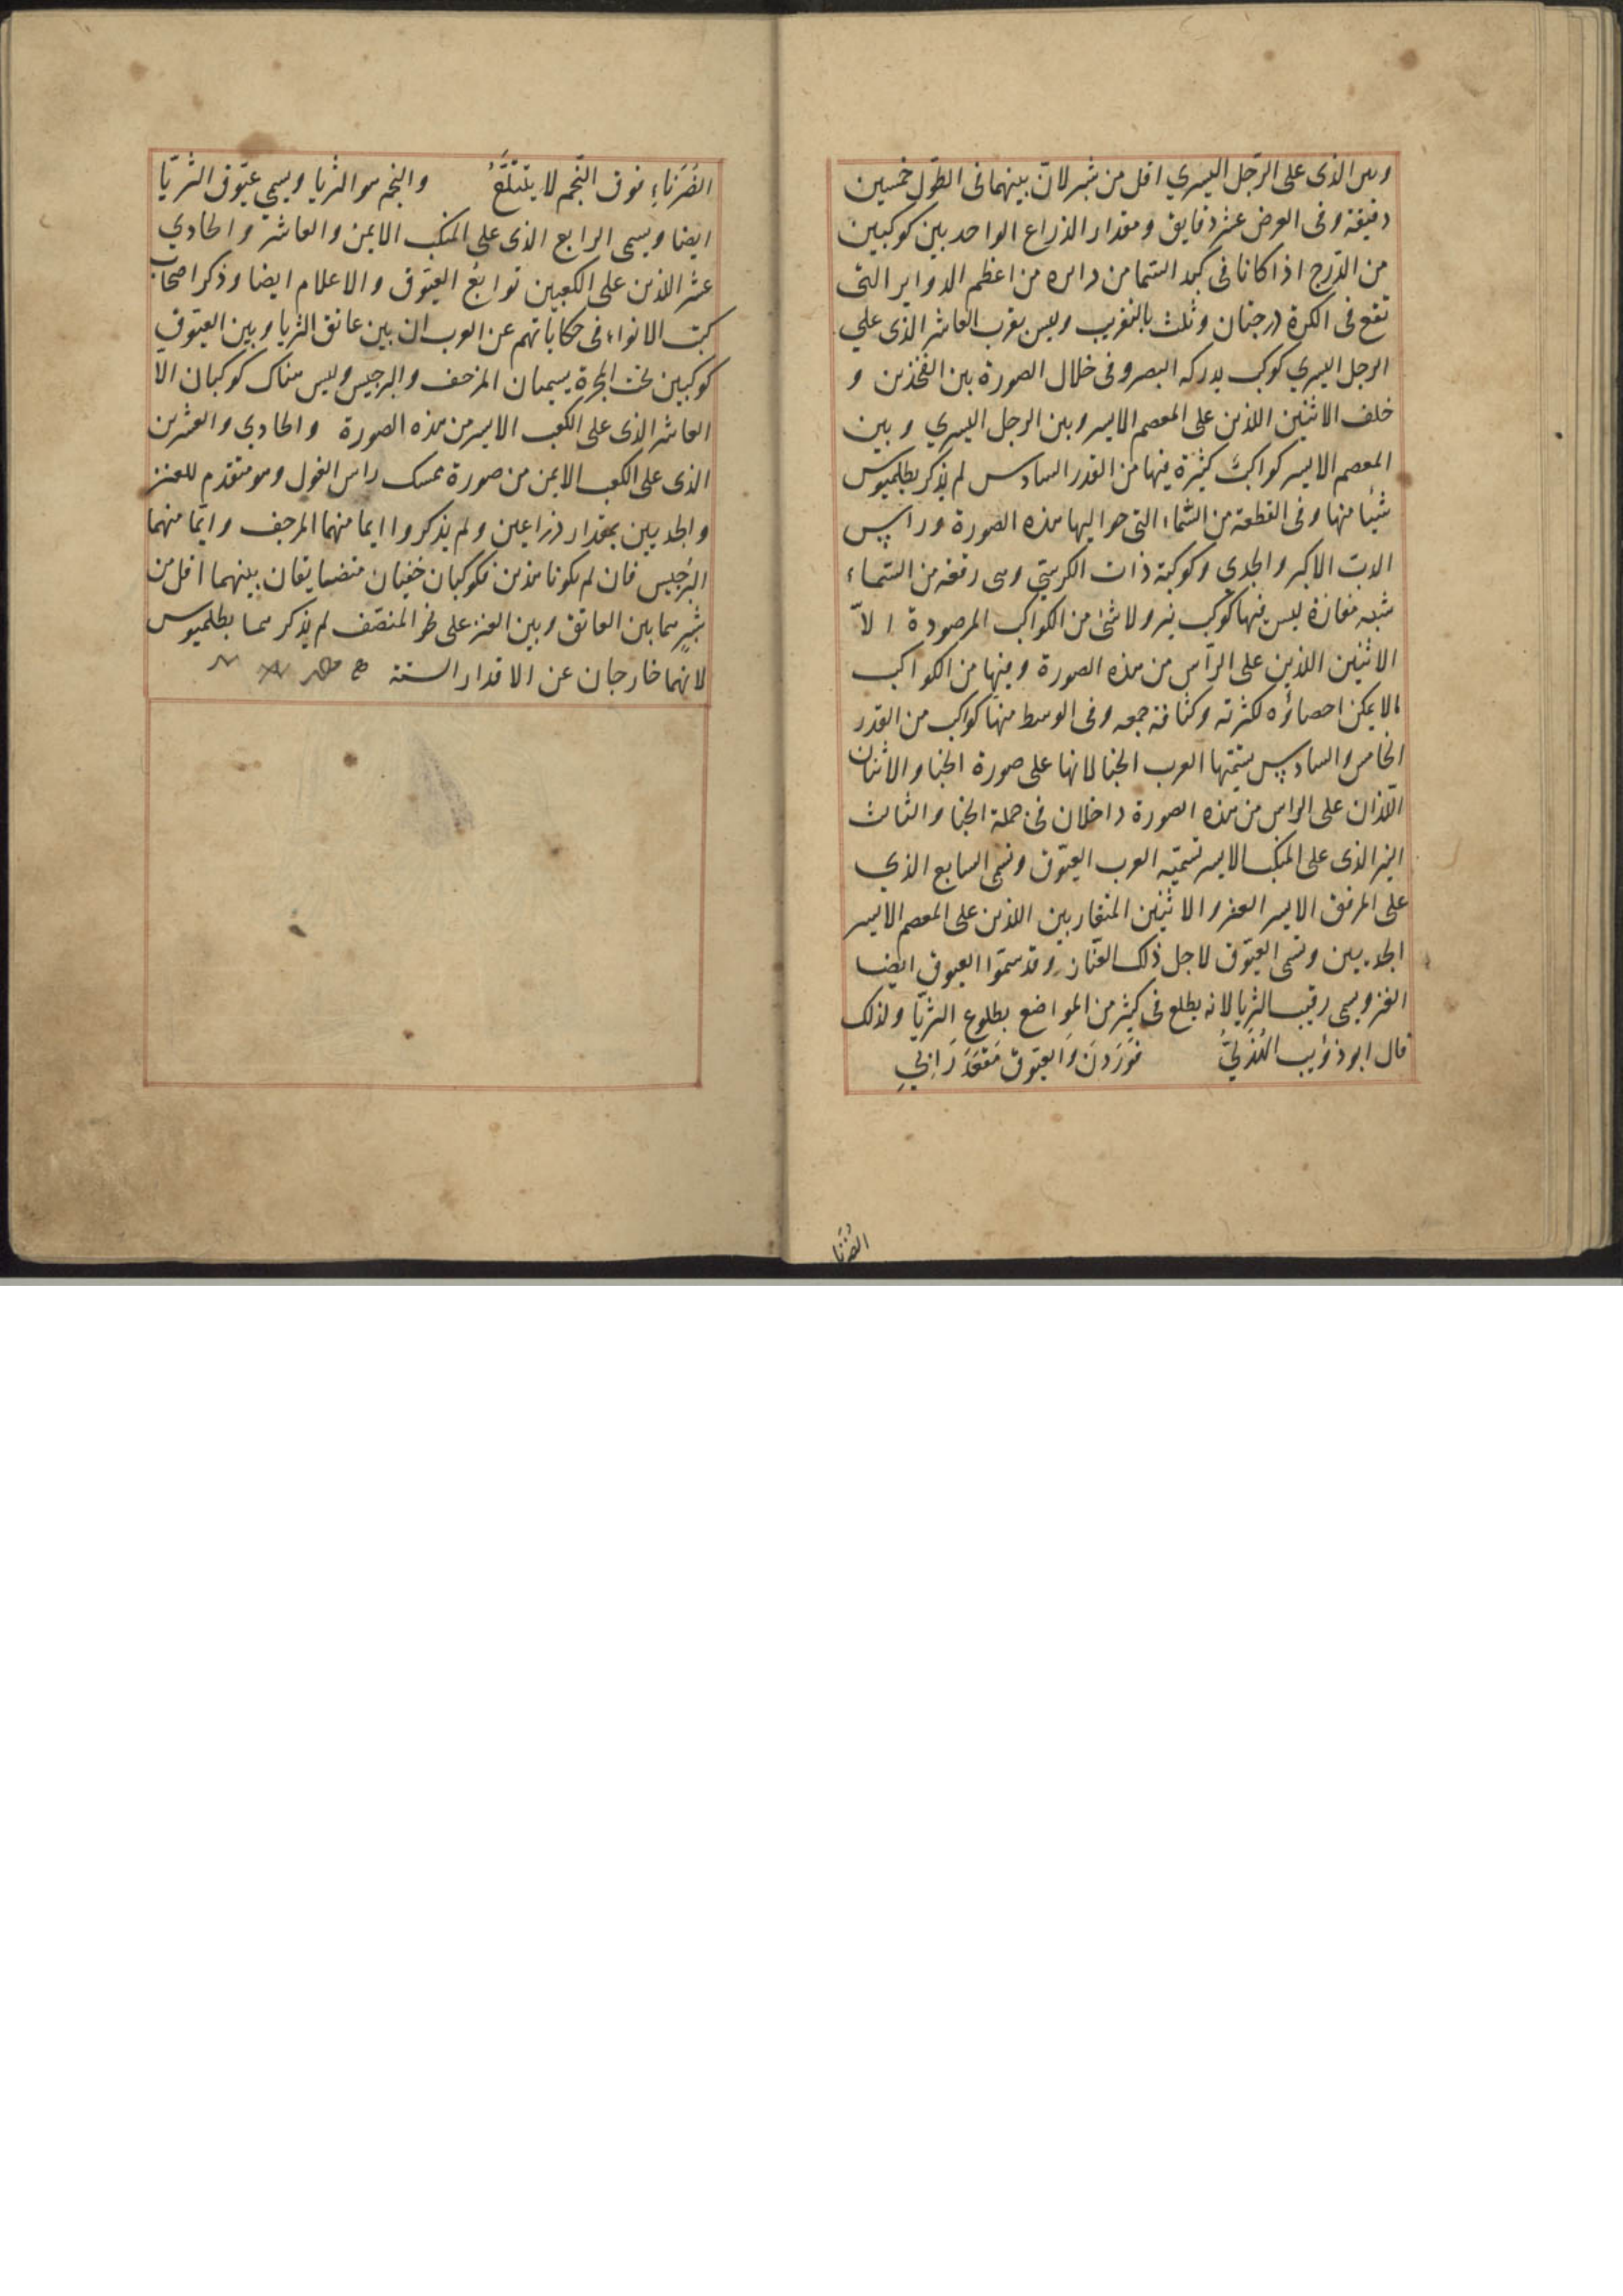 وبين الذى على الرّجل اليسري اقل من شبر لانّ بينهما فى الطّول خمسين
دقيقة وفى العرض عشر دقايق ومقدار الذراع الواحد بين كوكبين
من الدّرج اذا كانا فى كبد السّما من دايره من اعظم الدواير التى
تقع فى الكرة درجتان وثلث بالتقريب وليس بقرب العاشر الذى علي
الرجل اليسري كوكب يدركه البصر وفى خلال الصورة بين الفخذين و
خلف الاثنين اللذين على المعصم الايسر وبين الرجل اليسري وبين
المعصم الايسر كواكبَ كثيْرة فيها من القدر السادس لم يذكر بطلميوس
شيئا منها وفى القطعة من السّماء التى حواليها هذه الصورة وراس
الدب الاكبر والجدي وكوكبة ذات الكرسيّ وهى رقعه من السّماء
شبه مفازة ليس فيها كوكب نير ولا شئ من الكواكب المرصودة الّا
الاثنين اللذين على الرأس من هذه الصورة وفيها من الكواكب
مالا يمكن احصاؤه لكثرته وكثافة جمعه وفى الوسط منها كواكب من القدر
الخامس والسادس يسمّيها العرب الخبا لانها على صورة الخبا والاثنان
اللّذان على الراس من هذه الصورة داخلان فى جملة الخبا والثالث
النير الذى على المنكب الايسر تسميّه العرب العيّوق وتسمى السابع الذي
على المرفق الايسر العنز والاثنين المتقاربين اللذين على المعصم الايسر
الجديين وتسمى العيّوق لاجل ذلك العنّاز وقد سمّوا العيوق ايضا
العنز ويسمى رقيب الثريا لانه يطلع فى كثير من المواضع بطلوع الثريّا ولذلك
قال ابو ذؤيب الهُذَليُّ فَوَرَدنَ وَالعيّوق مَقعَدَ رَابِئِ
الضُرَبَا
الضُرَبَاءِ فوق النّجم لا يتَتَلَّعُ والنجم هو الثريا ويسمي عيّوق الثريّا
ايضا ويسمى الرابع الذى على المنكب الايمن والعاشر والحادي
عشر اللذين على الكعبين توابع العيّوق والاعلام ايضا وذكر اصحاب
كتب الانواء فى حكاياتهم عن العرب ان بين عاتق الثريا وبين العيّوق
كوكبين تحت المجرة يسميان المرجف والبرجيس وليس هناك كوكبان الا
العاشر الذى على الكعب الايسر من هذه الصورة والحادي والعشرين
الذى على الكعب الايمن من صورة ممسك راس الغول وهو متقدم للعنز
والجديين بمقدار ذراعين ولم يذكروا ايما منهما المرجف وايّما منهما
البرْجيس فان لم يكونا هذين فكوكبان خفيان متضايقان بينهما اقل من
شبرٍ هما بين العاتق وبين العنز على نحو المنتصف لم يذكرهما بطلميوس
لانهما خارجان عن الاقدار الستة